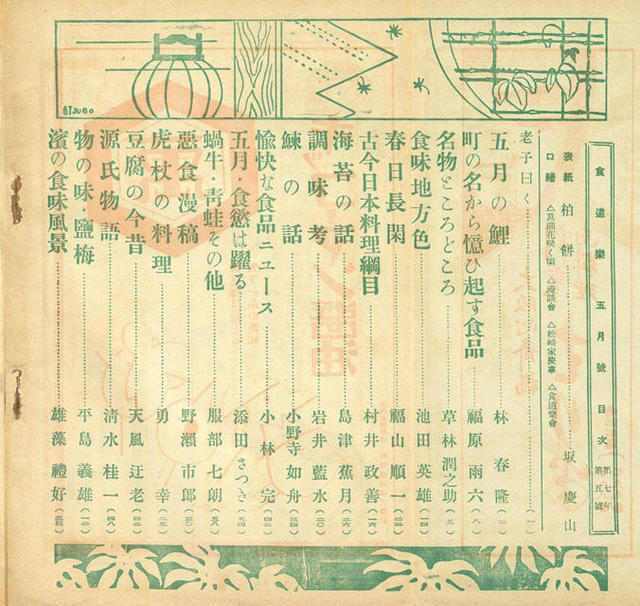 食道樂 五月號目次 第七年 第五號
表紙 柏餅……坂慶山
口繪 △菖蒲花咲く頃 △漫談會 △松崎家慶事 △食道樂會
老子曰く……(一)
五月の鯉……林春隆(二)
町の名から憶ひ起す食品……福原雨六(八)
名物ところどころ……草林潤之助(五)
食味地方色……池田英雄(一四)
春日長閑……福山順一(三三)
古今日本料理綱目……村井政善(一六)
海苔の話……島津蕉月(二六)
調味考……岩井藍水(二〇)
鰊の話……小野寺如舟(三四)
愉快な食品ニュース……小林完(四三)
五月・食慾は躍る……添田さつき(五四)
蝸牛・靑蛙その他……服部七朗(五九)
惡食漫稿……野瀨市郎
虎杖の料理……勇幸(三五)
豆腐の今昔……天風迂老(四四)
源氏物語……清水桂一(四八)
物の味鹽梅……平島義雄(一二)
濱の食味風景……雄藻禮好
OTSUBO